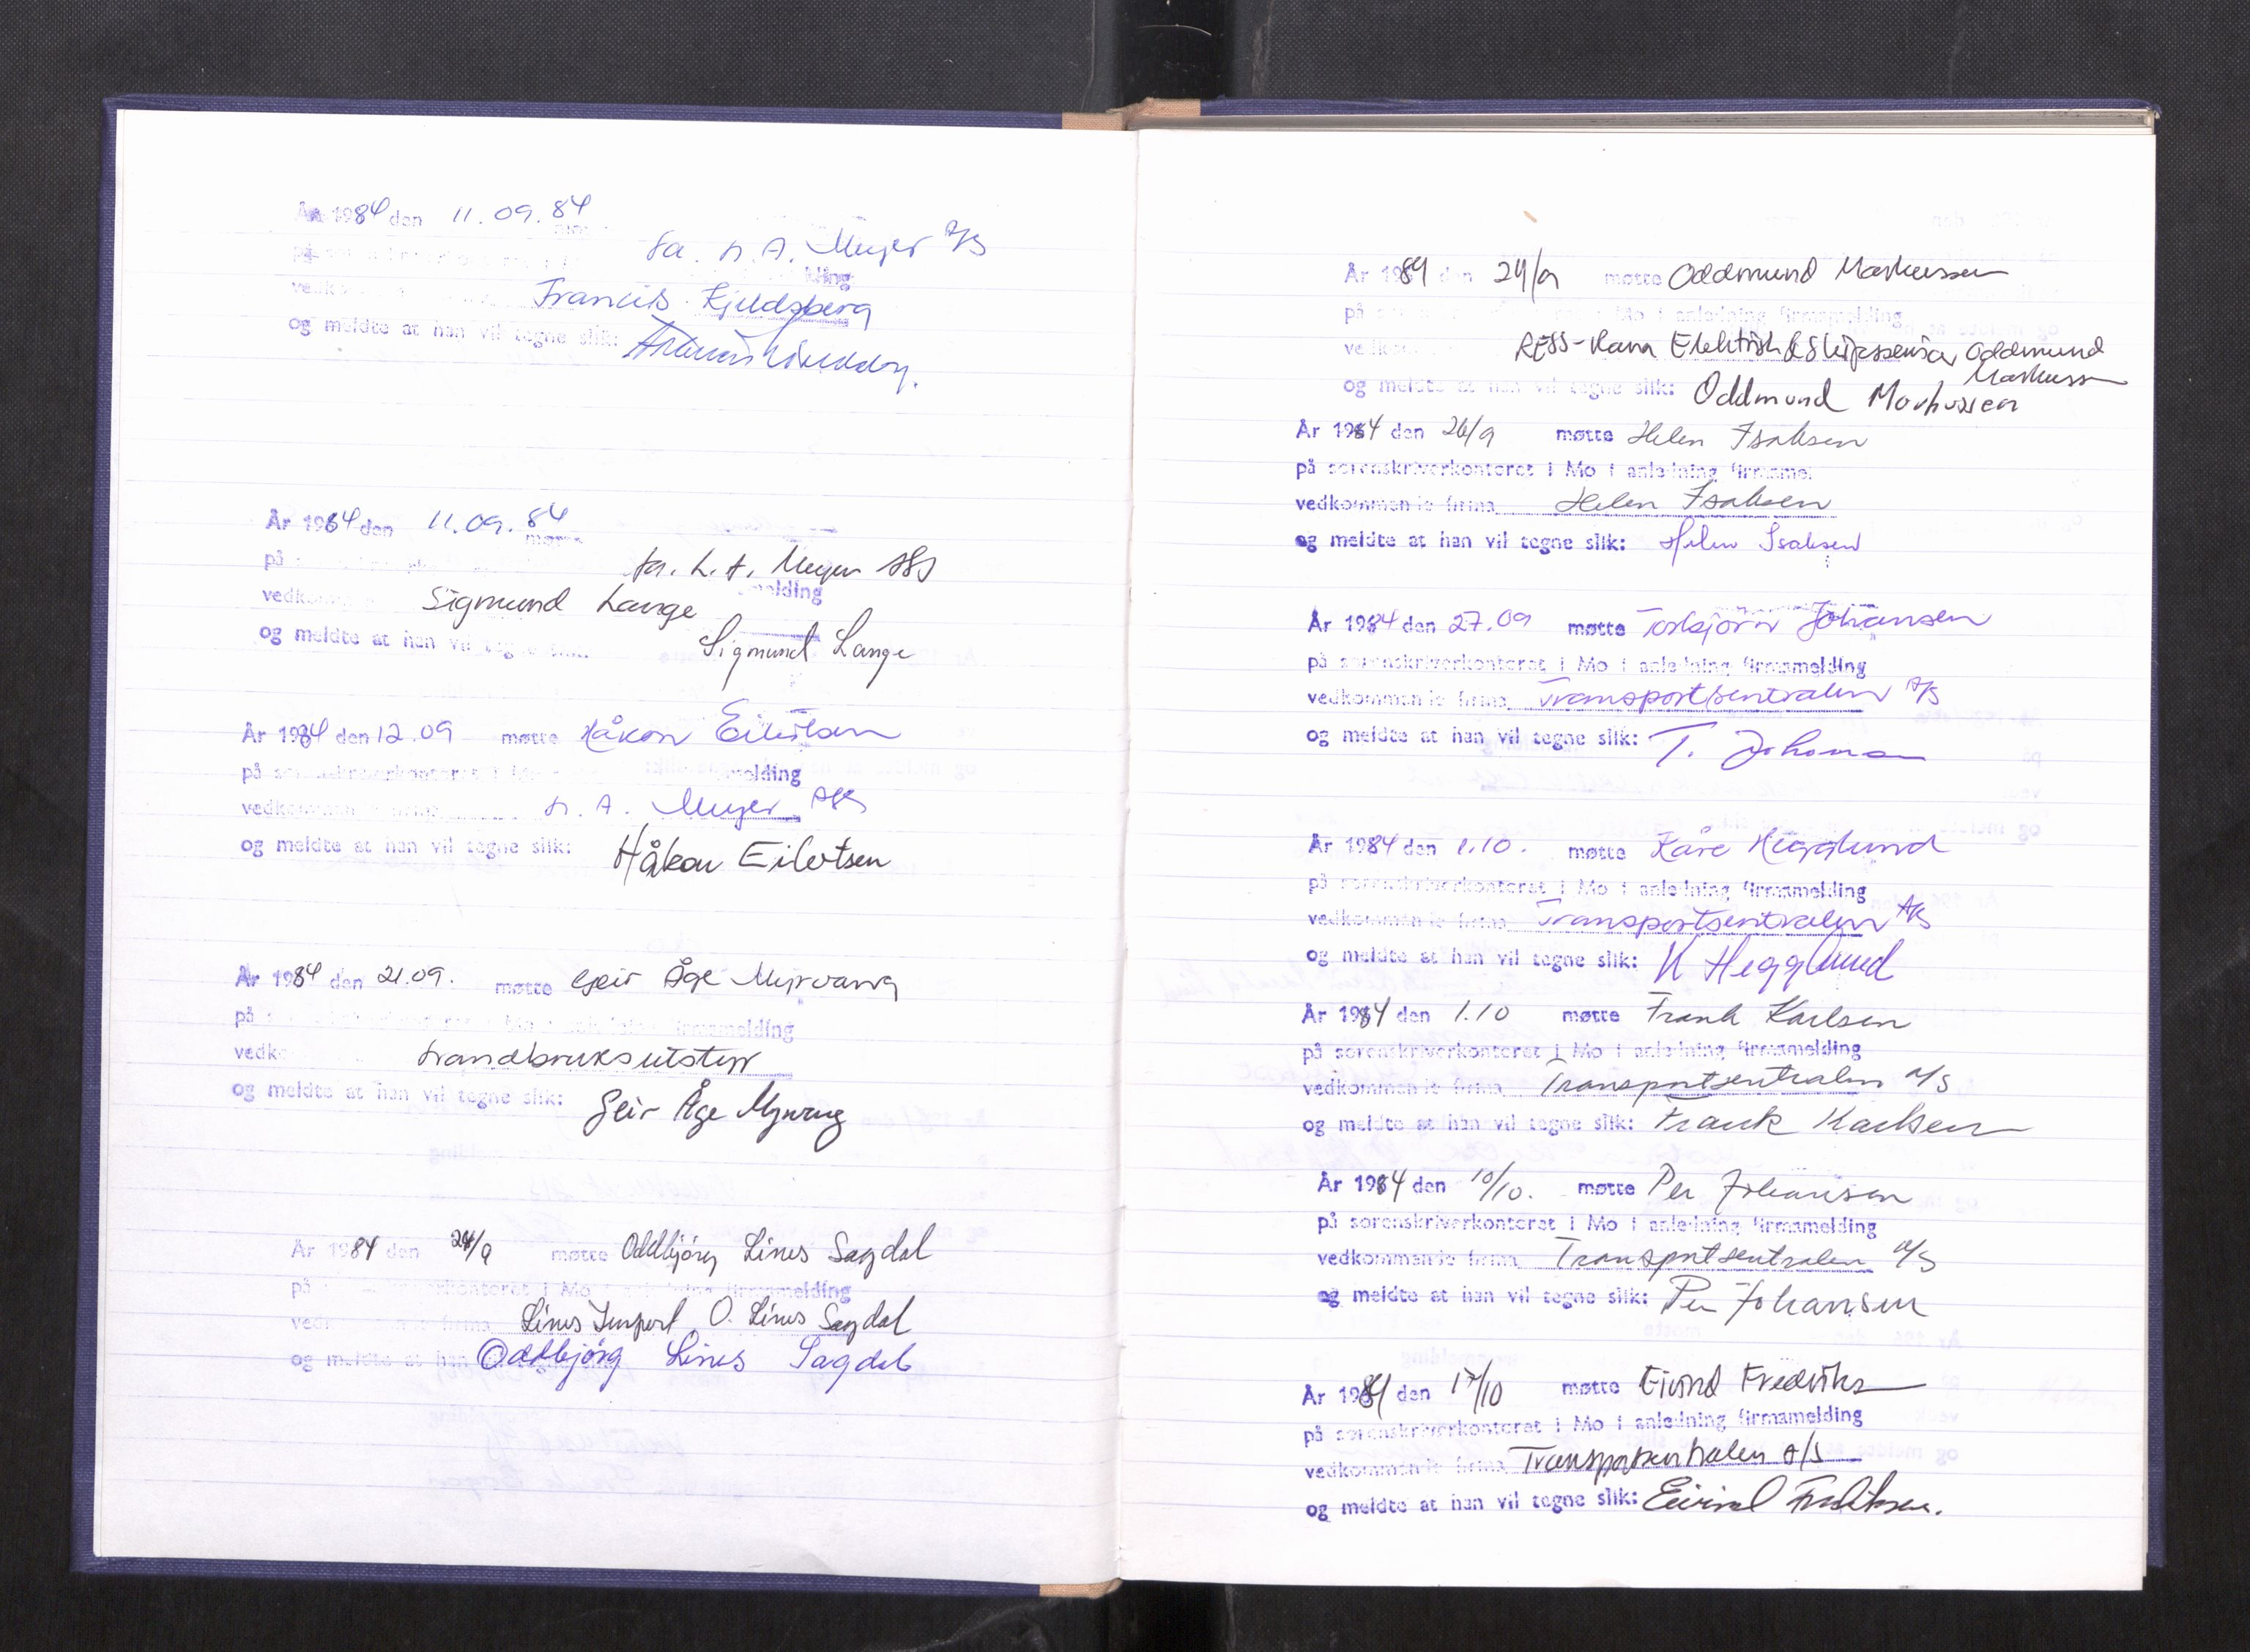 År 1984 den 11.09.84
fa. L. A. Meyer A/S
Francis Kjeldsberg
og meldte at han vil tegne slik:
År 1984 den 11.09.84 møtte
på fa. L. A. Meyer A/S
vedk melding
Sigmund Lange
og meldte at han vil teg
Sigmund Lange
År 1984 den 12.09 møtte Håkon Eilertsen
på sorenskriverkontoret i melding
vedkommen L. A. Meyer A/S
og meldte at han vil tegne slik: Håkon Eilertsen
År 1984 den 21.09. møtte Geir Åge Myrvang
på Mo firmamelding
vedk Landbruksutstyr
og meldte at han vil tegne slik: Geir Åge Myrvang
År 1984 den 24/9 møtte Oddbjørg Lines Sagdal
på kontoret i Mo i anledning firmamelding
ved firma Lines Import O. Lines Sagdal
og meldte at han Oddbjørg Lines Sagdal
År 1984 den 24/9 møtte Oddmund Markussen
på Mo i anledning firmamelding
vedk RESS-Rana Elektrisk & Skipsservice Oddmund
Markussen
og meldte at han vil tegne slik: Oddmund Markussen
År 1984 den 26/9 møtte Helen Isaksen
på sorenskriverkontoret i Mo i anledning firmame
vedkommende firma Helen Isaksen
og meldte at han vil tegne slik: Helen Isaksen
År 1984 den 27.09 møtte Torbjørn Johansen
på sorenskriverkontoret i Mo i anledning firmamelding
vedkommende firma Transportsentralen A/S
og meldte at han vil tegne slik: T. Johansen
År 1984 den 1.10. møtte Kåre Hegglund
på sorenskriverkontoret i Mo i anledning firmamelding
vedkommende firma Transportsentralen A/S
og meldte at han vil tegne slik: K Hegglund
År 1984 den 1.10 møtte Frank Karlsen
på sorenskriverkontoret i Mo i anledning firmamelding
vedkommende firma Transportsentralen A/S
og meldte at han vil tegne slik: Frank Karlsen
År 1984 den 10/10. møtte Per Johansen
på sorenskriverkontoret i Mo i anledning firmamelding
vedkommende firma Transportsentralen A/S
og meldte at han vil tegne slik: Per Johansen
År 1984 den 17/10 møtte Eivind Fredriks
på sorenskriverkontoret i Mo i anledning firmamelding
vedkommende firma Transportsentralen A/S
og meldte at han vil tegne slik: Eivind Fredriksen.